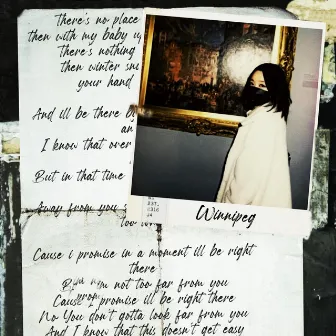 There's no place
then with my baby
There's nothing
then winter
your hand
And ill be there
an
I know that over
But in that time
Away from you
too
Winnipeg
Cause i promise in a moment ill be right
there
not too far from you
Cause promise ill be right there
No You don't gotta look far from you
And I know that this doesn't get easy